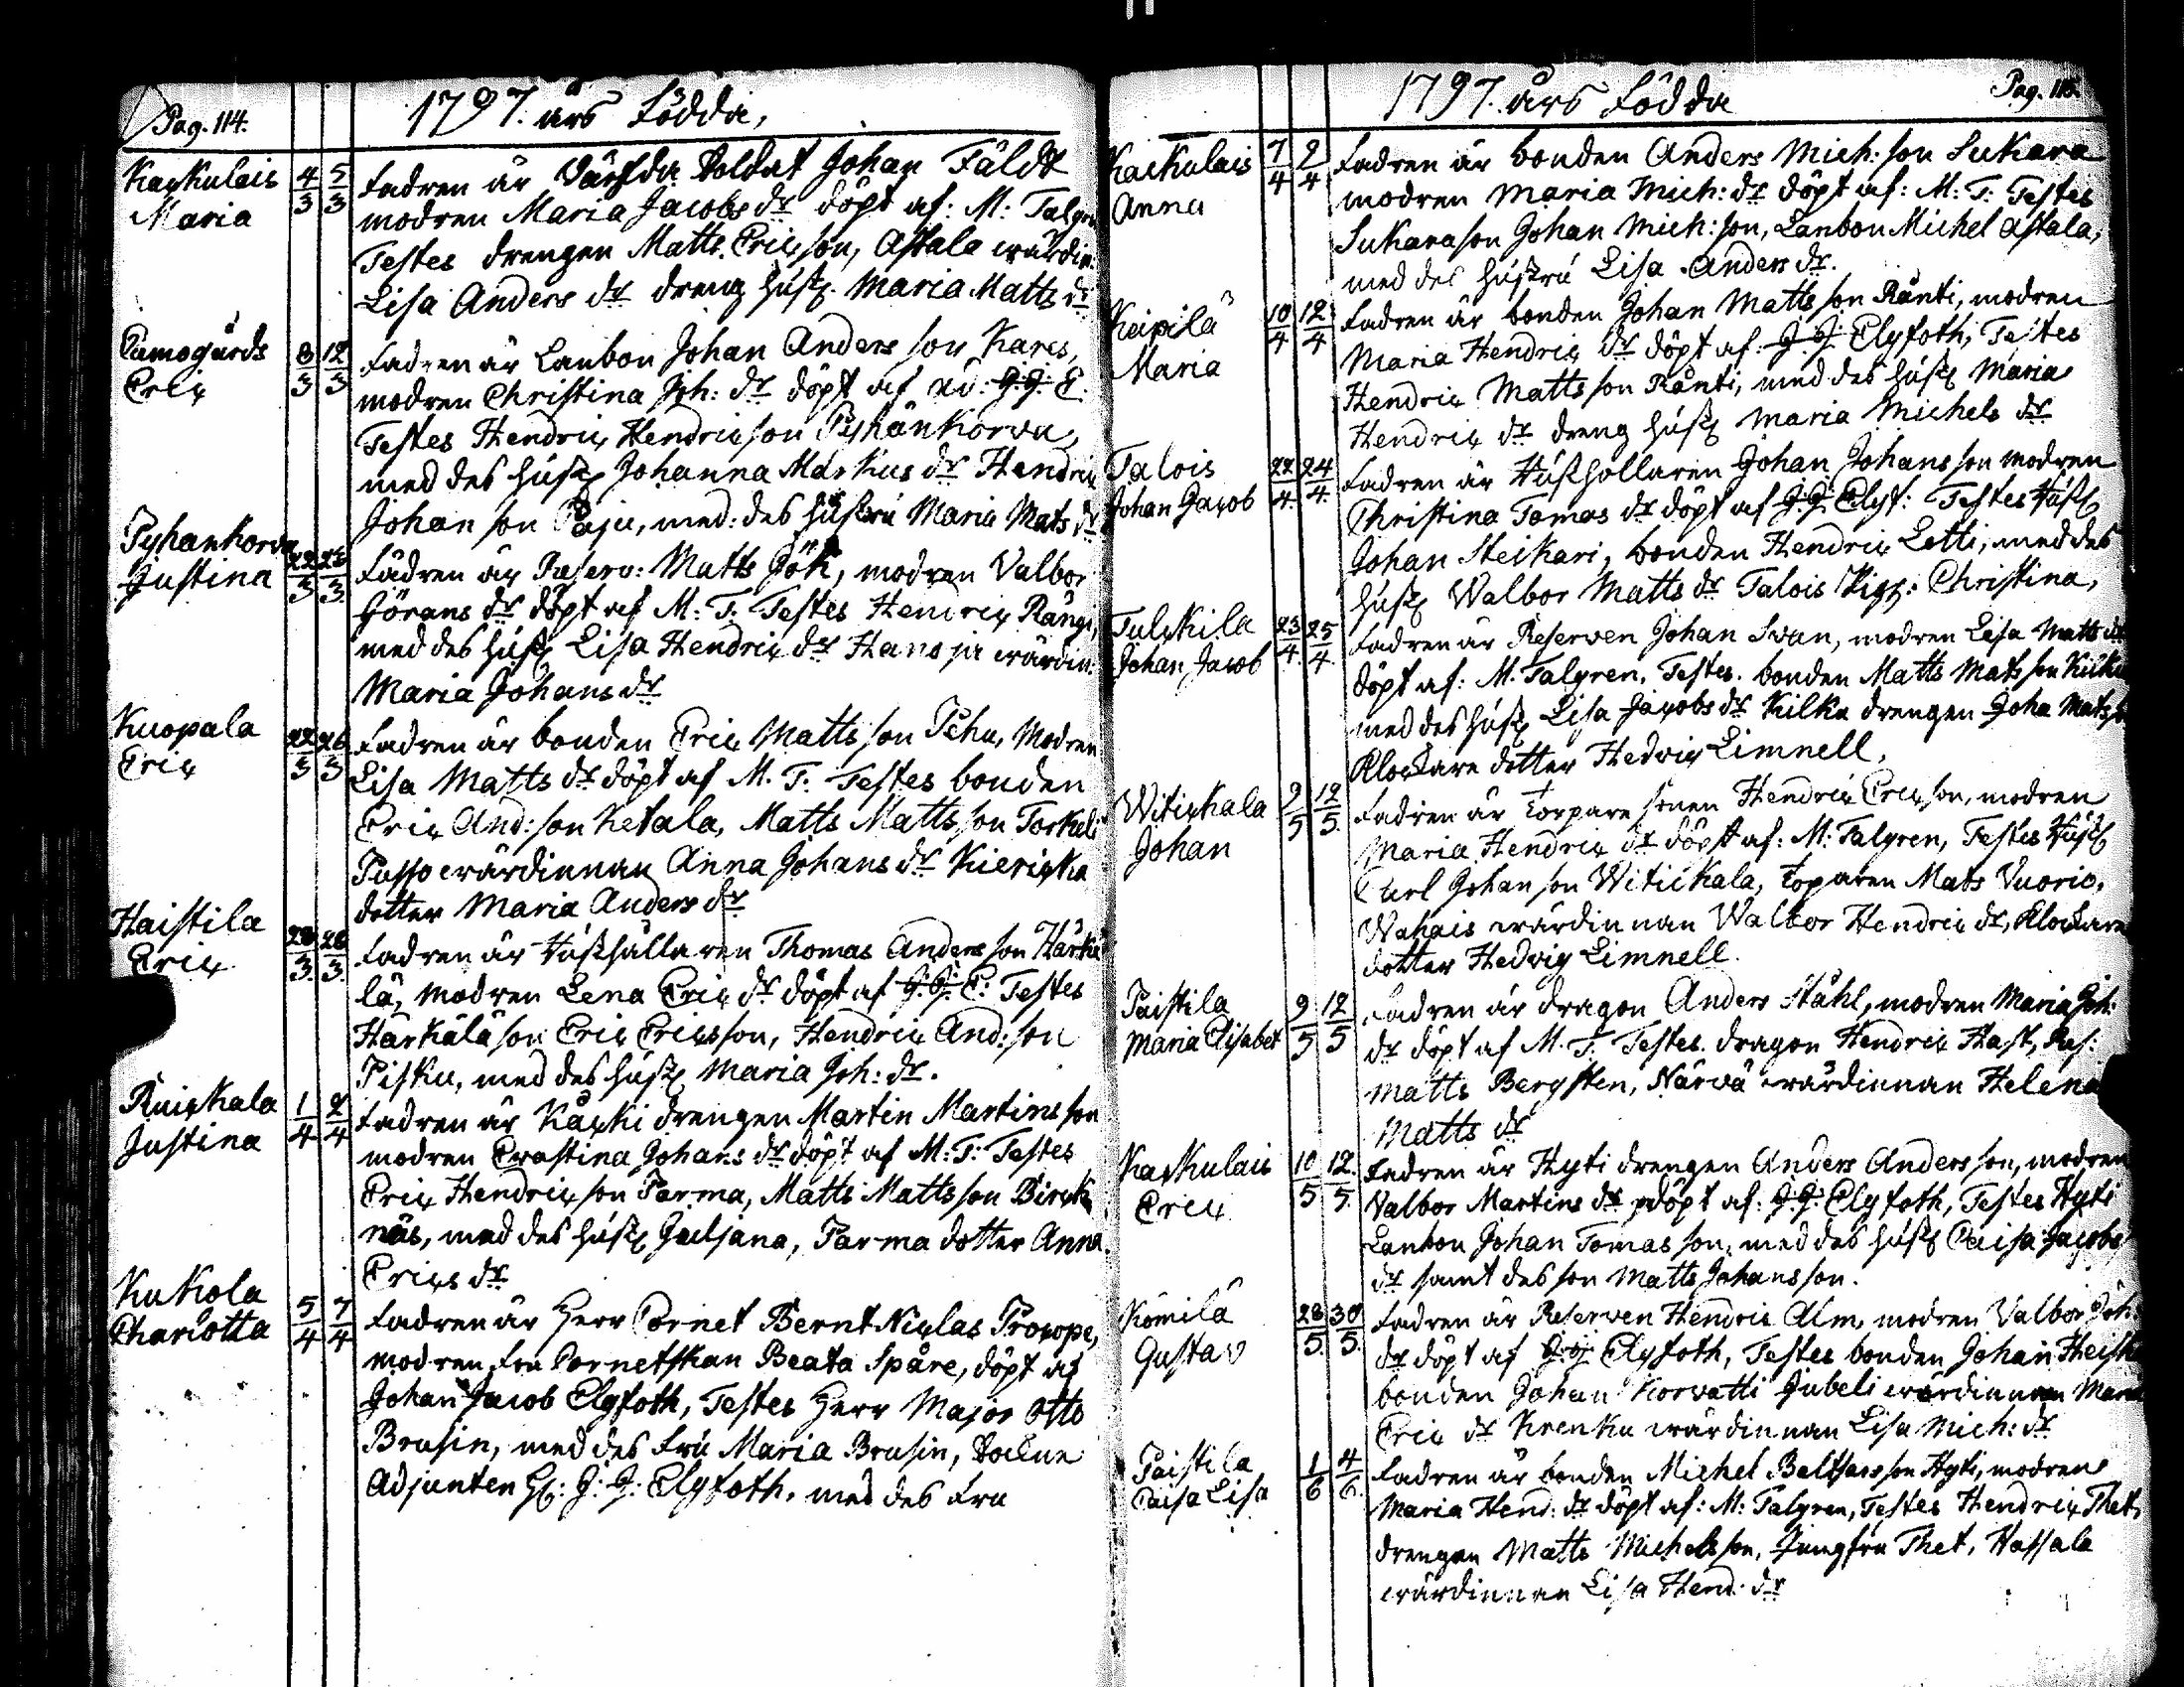 Pag. 114.
1797. års Födda,
Kaukulais 4/3 5/3 Fadren är Värfda Soldat Johan Fäldt
Maria modren Maria Jacobs dr döpt af: M: Talgren
Testes drengen Matts Ericsson, Astala wärdin:
Lisa Anders dr dreng hust. Maria Matts dr
8/3 12/3 Fadren är Lanbon Johan Andersson Kares,
Eric modren Christina Joh: dr döpt af ad: J.J. E.
Testes Hendric Hendricsson Pyhänkorva,
med des hust Johanna Markus dr Hendric
Johansson Paju, med: des hustru Maria Mats dr
Pyhankorva
Justina Fadren är Reserv: Matts Jök, modren Valbor
Görans dr döpt af M. T. Testes Hendric Rängi,
med des hust Lisa Hendric dr Hansja wärdin:
Maria Johans dr
Kuopala 22/3 26/3 Fadren är bonden Eric Mattsson Pehu, Modren
Eric Lisa Matts dr döpt af M. T. Testes bonden
Eric And:son Ketala, Matts Mattsson Torkeli
Passo wärdinnan Anna Johans dr Kiericka
dotter Maria Anders dr
Haistila Fadren är Hushållaren Thomas Andersson Härkä
Eric lä, modren Lena Eric dr döpt af J. J. E: Testes
Härkäläson Eric Ericsson, Hendric And:son
Pisku, med des hust Maria Joh: dr.
Ruickala 1/4 2/4 Fadren är Kaski drengen Martin Martinsson
Justina modren Crastina Johans dr döpt af M: T: Testes
Eric Hendricsson Parma, Matts Mattsson Birck
näs, med des hust Juljana, Parma dotter Anna
Erics dr
Kukola 5/4 7/4 Fadren är Herr Cornet Bernt Niclas Procope,
Charlotta modren Fru Cornetskan Beata Spåre, döpt af
Johan Jacob Elgfoth, Testes Herr Major Otto
Brusin, med des Fru Maria Brusin,
Adjunten H: J: J: Elgfoth, med des Fru
Pag. 115.
1797. års Födda
Kaukulais 7/4 9/4 Fadren är bonden Anders Mich:son Sukara
Anna modren Maria Mich: dr döpt af: M: T: Testes
Sukarason Johan Mich:son, Lanbon Michel Astala,
med des hustru Lisa Anders dr.
Keipilä 10/4 12/4 Fadren är bonden Johan Mattsson Ränti, modren
Maria Maria Hendric dr döpt af: J. J. Elgfoth, Testes
Hendric Mattsson Ränti, med des hust Maria
Hendric dr dreng hust Maria Michels dr
Talois 22/4 24/4 Fadren är Hushollaren Johan Johansson modren
Johan Jacob Christina Tomas dr döpt af J: J: Elgf: Testes Hust
Johan Steikari, bonden Hendric Lotti, med des
hust Walbor Matts dr Talois Pig: Christina,
Tulckila 23/4 25/4 Fadren är Reserven Johan Svan, modren Lisa Matts dr
Johan Jacob döpt af: M. Talgren, Testes. bonden Matts Matsson Kulku
med des hust Lisa Jacobs dr Kilka drengen Joha Matsson
Klockare dotter Hedvig Limnell.
Witickala 9/5 12/5 Fadren är Torpare sonen Hendric Ericsson, modren
Johan Maria Hendric dr döpt af: M: Talgren, Testes Hust
Carl Johansson Witickala, Toparen Mats Vuorio,
Wahais wärdinnan Walbor Hendric dr, Klockare
dotter Hedvig Limnell.
Paistila 9/5 12/5 Fadren är dragon Anders Ståhl, modren Maria Joh:
Maria Elisabet dr döpt af M. T: Testes. dragon Hendric Hast, Res:
Matts Bergsten, Närvä wärdinnan Helena
Matts dr
Kaukulais 10/5 12/5 Fadren är Hyti drengen Anders Andersson, modren
Eric Valbor Martins dr döpt af: J. J. Elgfoth, Testes Hyti
Lanbon Johan Tomasson, med des hust Caisa Jacobs
dr samt des son Matts Johansson.
Komila 28/5 30/5 Fadren är Reserven Hendric Alm, modren Valbor Joh:
Gustav dr döpt af J: J: Elgfoth, Testes bonden Johan Heisk
bonden Johan Korvatti Jubeli wärdinnan Maria
Eric dr Krenku wärdinnan Lisa Mich: dr
Paistila 1/6 4/6 Fadren är bonden Michel Baltsarsson Hyti, modren
Caisa Lisa Maria Hend: dr döpt af: M: Talgren, Testes Hendric Thet,
drengen Matts Michelsson, Jungfru Thet, Hassala
wärdinnan Lisa Hend: dr